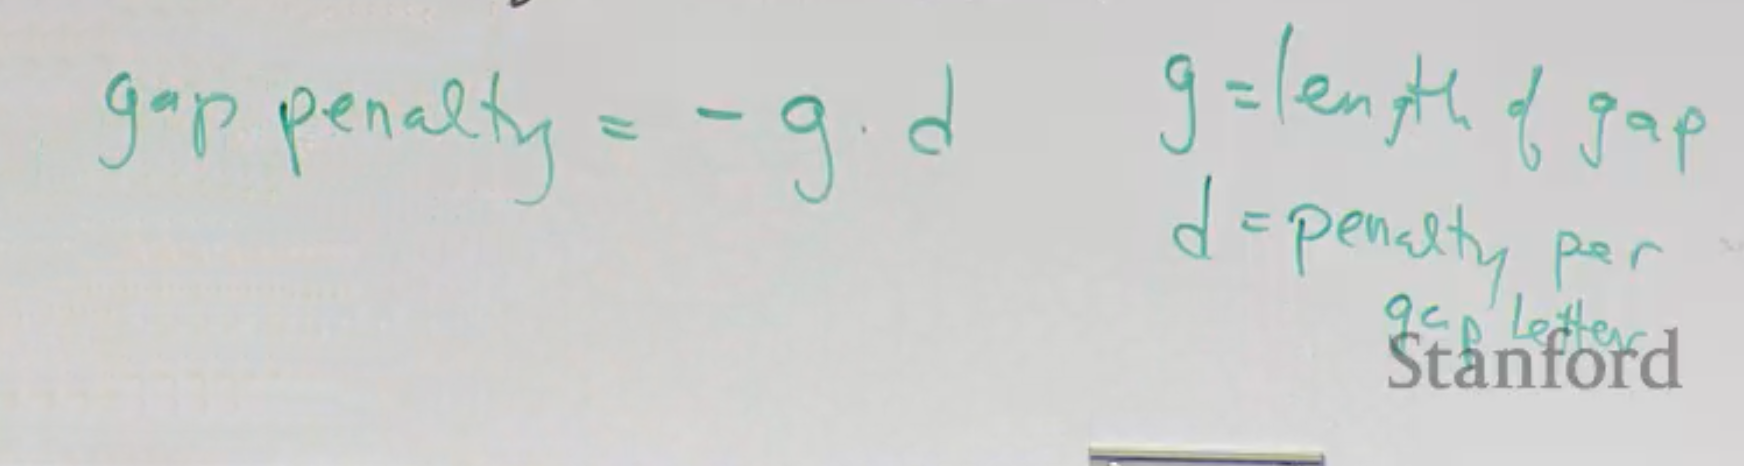 gap penalty = - g · d
g = length of gap
d = penalty per
gap letter
Stanford